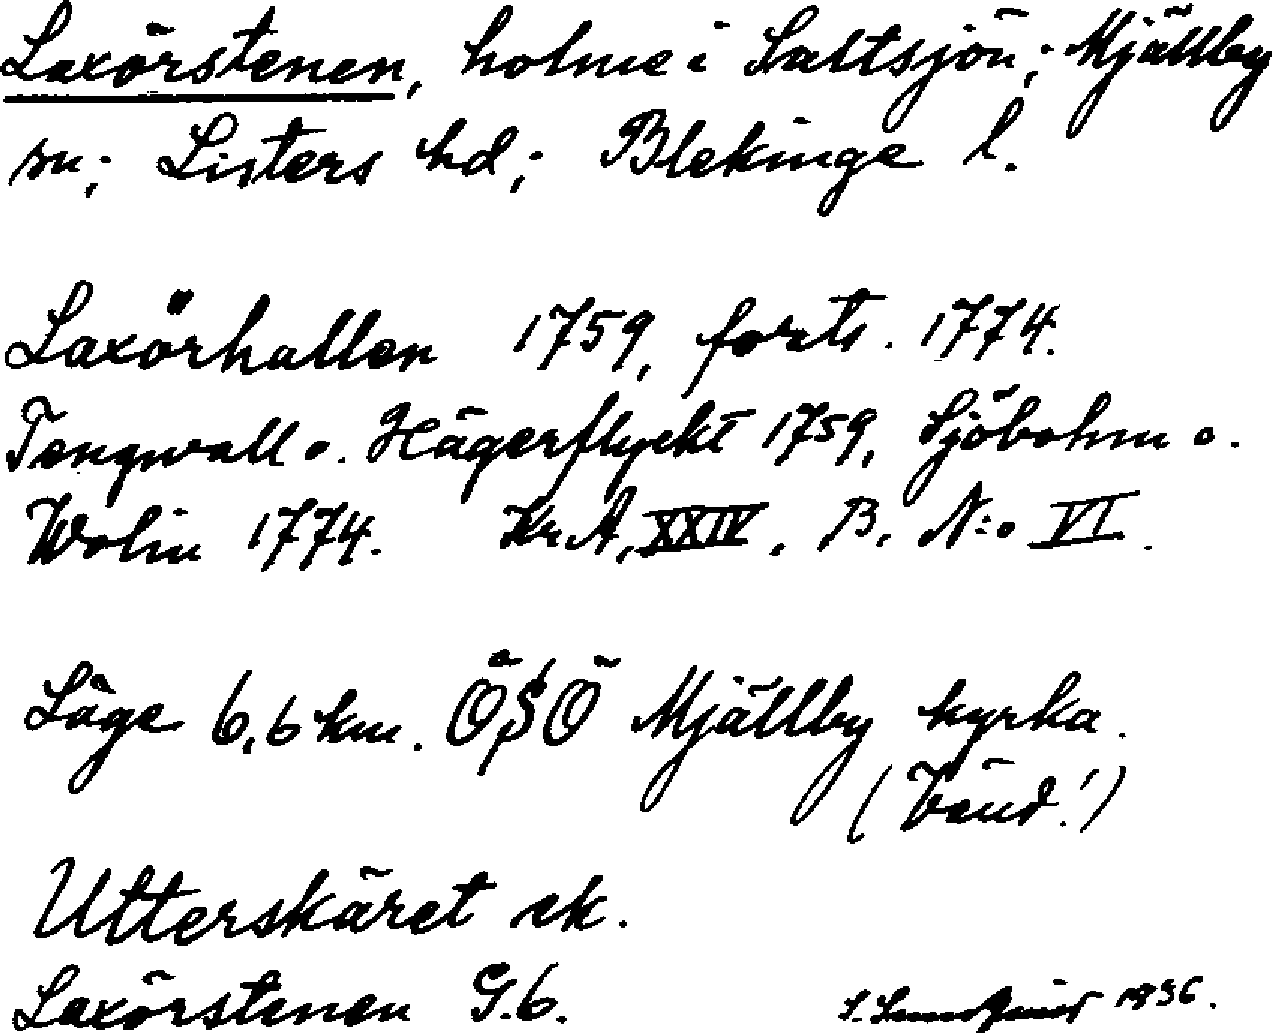 Laxörstenen, holme i Saltsjön; Mjällby
sn; Listers hd; Blekinge l.
Laxörhallen 1759, forts. 1774.
Tengwall o. Hägerflyckt 1759, Sjöbohm o.
Wolin 1774. Kr. A, XXIV, B, N:o VI.
Läge 6,6 km. ÖSÖ Mjällby kyrka.
(Vänd!)
Utterskäret ek.
Laxörstenen G.6.
1936.